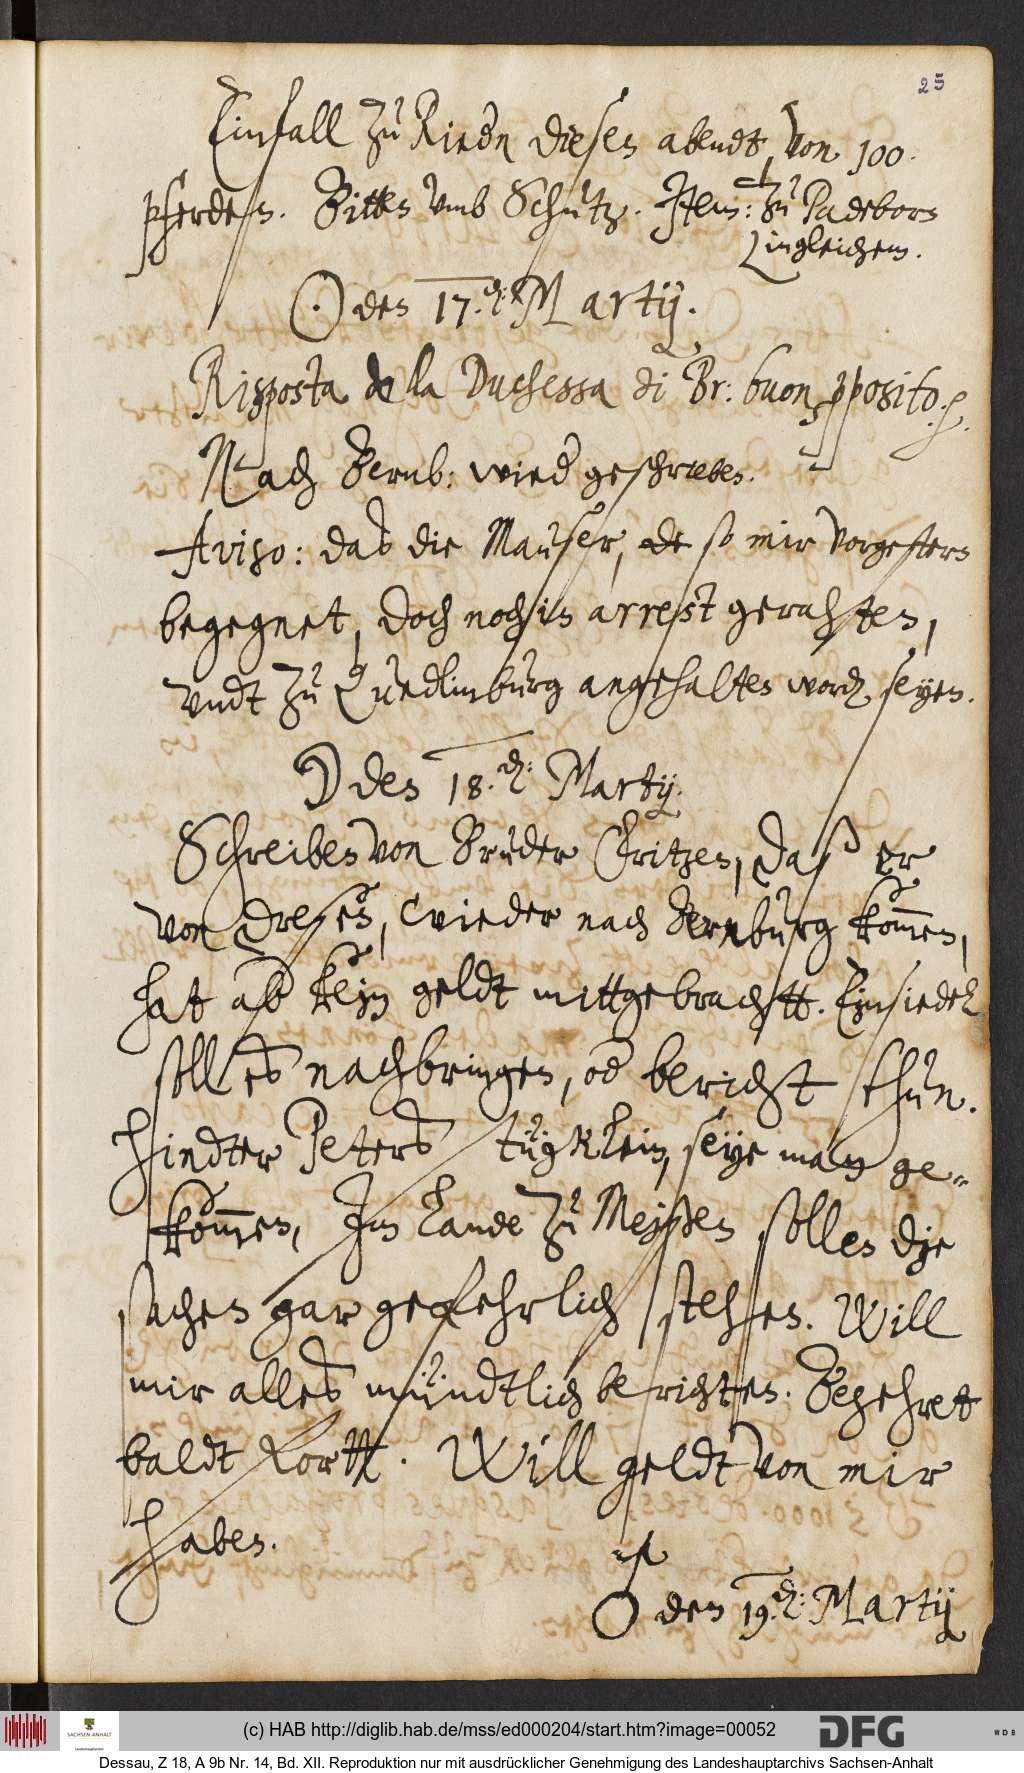 25
Einfall zu Riedn diesen abendt, von 100.
pferden. Bitten vmb Schutz. Item: zu Padeborn
ingleichem.
☉ den 17.den: Martij.
Risposta della Duchessa di Br: buon pposito.
Nach Bernb: wird geschrieben.
Aviso: das die Mauser, so mir vorgestern
begegnet, doch noch in arrest gerahten,
vndt zu Quedlinburg angehalten word, seyen.
☽ den 18.den: Martij.
Schreiben von Bruder Fritzen, daß er
von Dreßen, wieder nach Bernburg kommen,
hat ab kein geldt mittgebrachtt. Einsiedel
soll es nachbringen, od bericht thun.
Hindter Peters tügklein, seye man ge-
kommen, Im Lande zu Meyßen sollen die
sachen gar gefehrlich stehen. Will
mir alles mündtlich berichten. Begehret
baldt Fortt. Will geldt von mir
haben.
♂ den 19.den: Martij
(c) HAB http://diglib.hab.de/mss/ed000204/start.htm?image=00052
DFG
WDB
SACHSEN-ANHALT
Landeshauptarchiv
Dessau, Z 18, A 9b Nr. 14, Bd. XII. Reproduktion nur mit ausdrücklicher Genehmigung des Landeshauptarchivs Sachsen-Anhalt